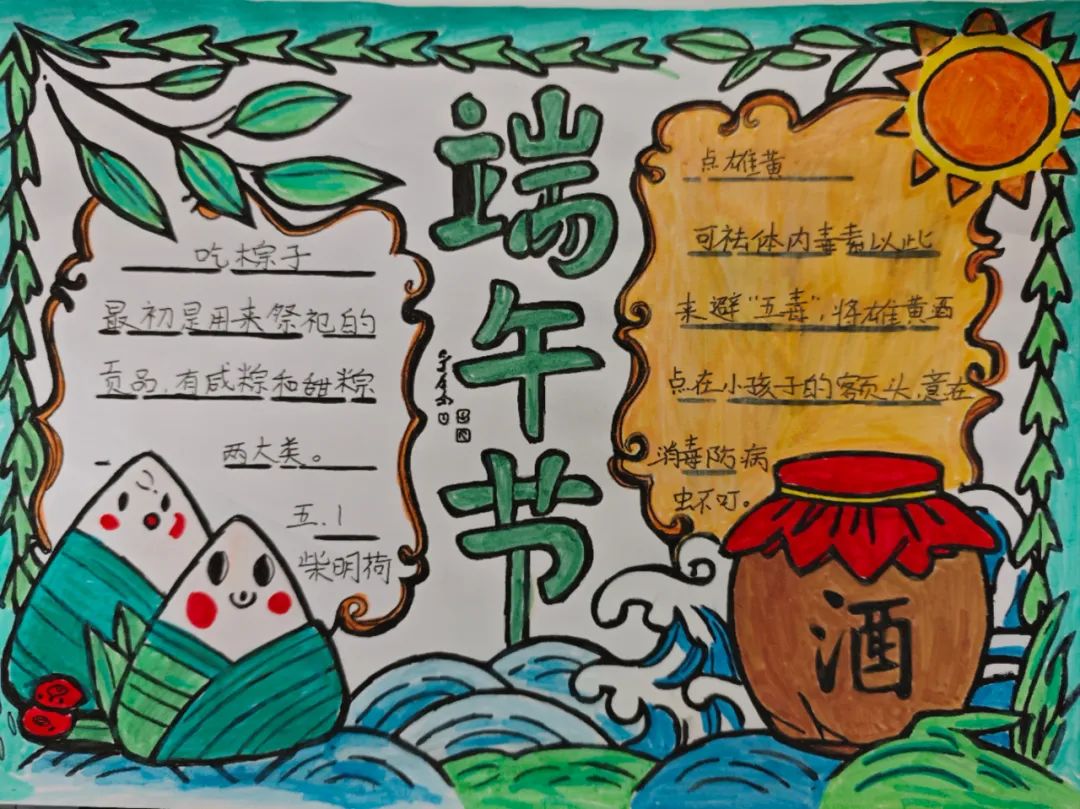 端午节
吃粽子
最初是用来祭祀的
贡品，有咸粽和甜粽
两大类。
五.1
柴明荷
点雄黄
可祛体内毒素以此
来避“五毒”，将雄黄酒
点在小孩子的额头，意在
消毒防病
虫不叮。
酒